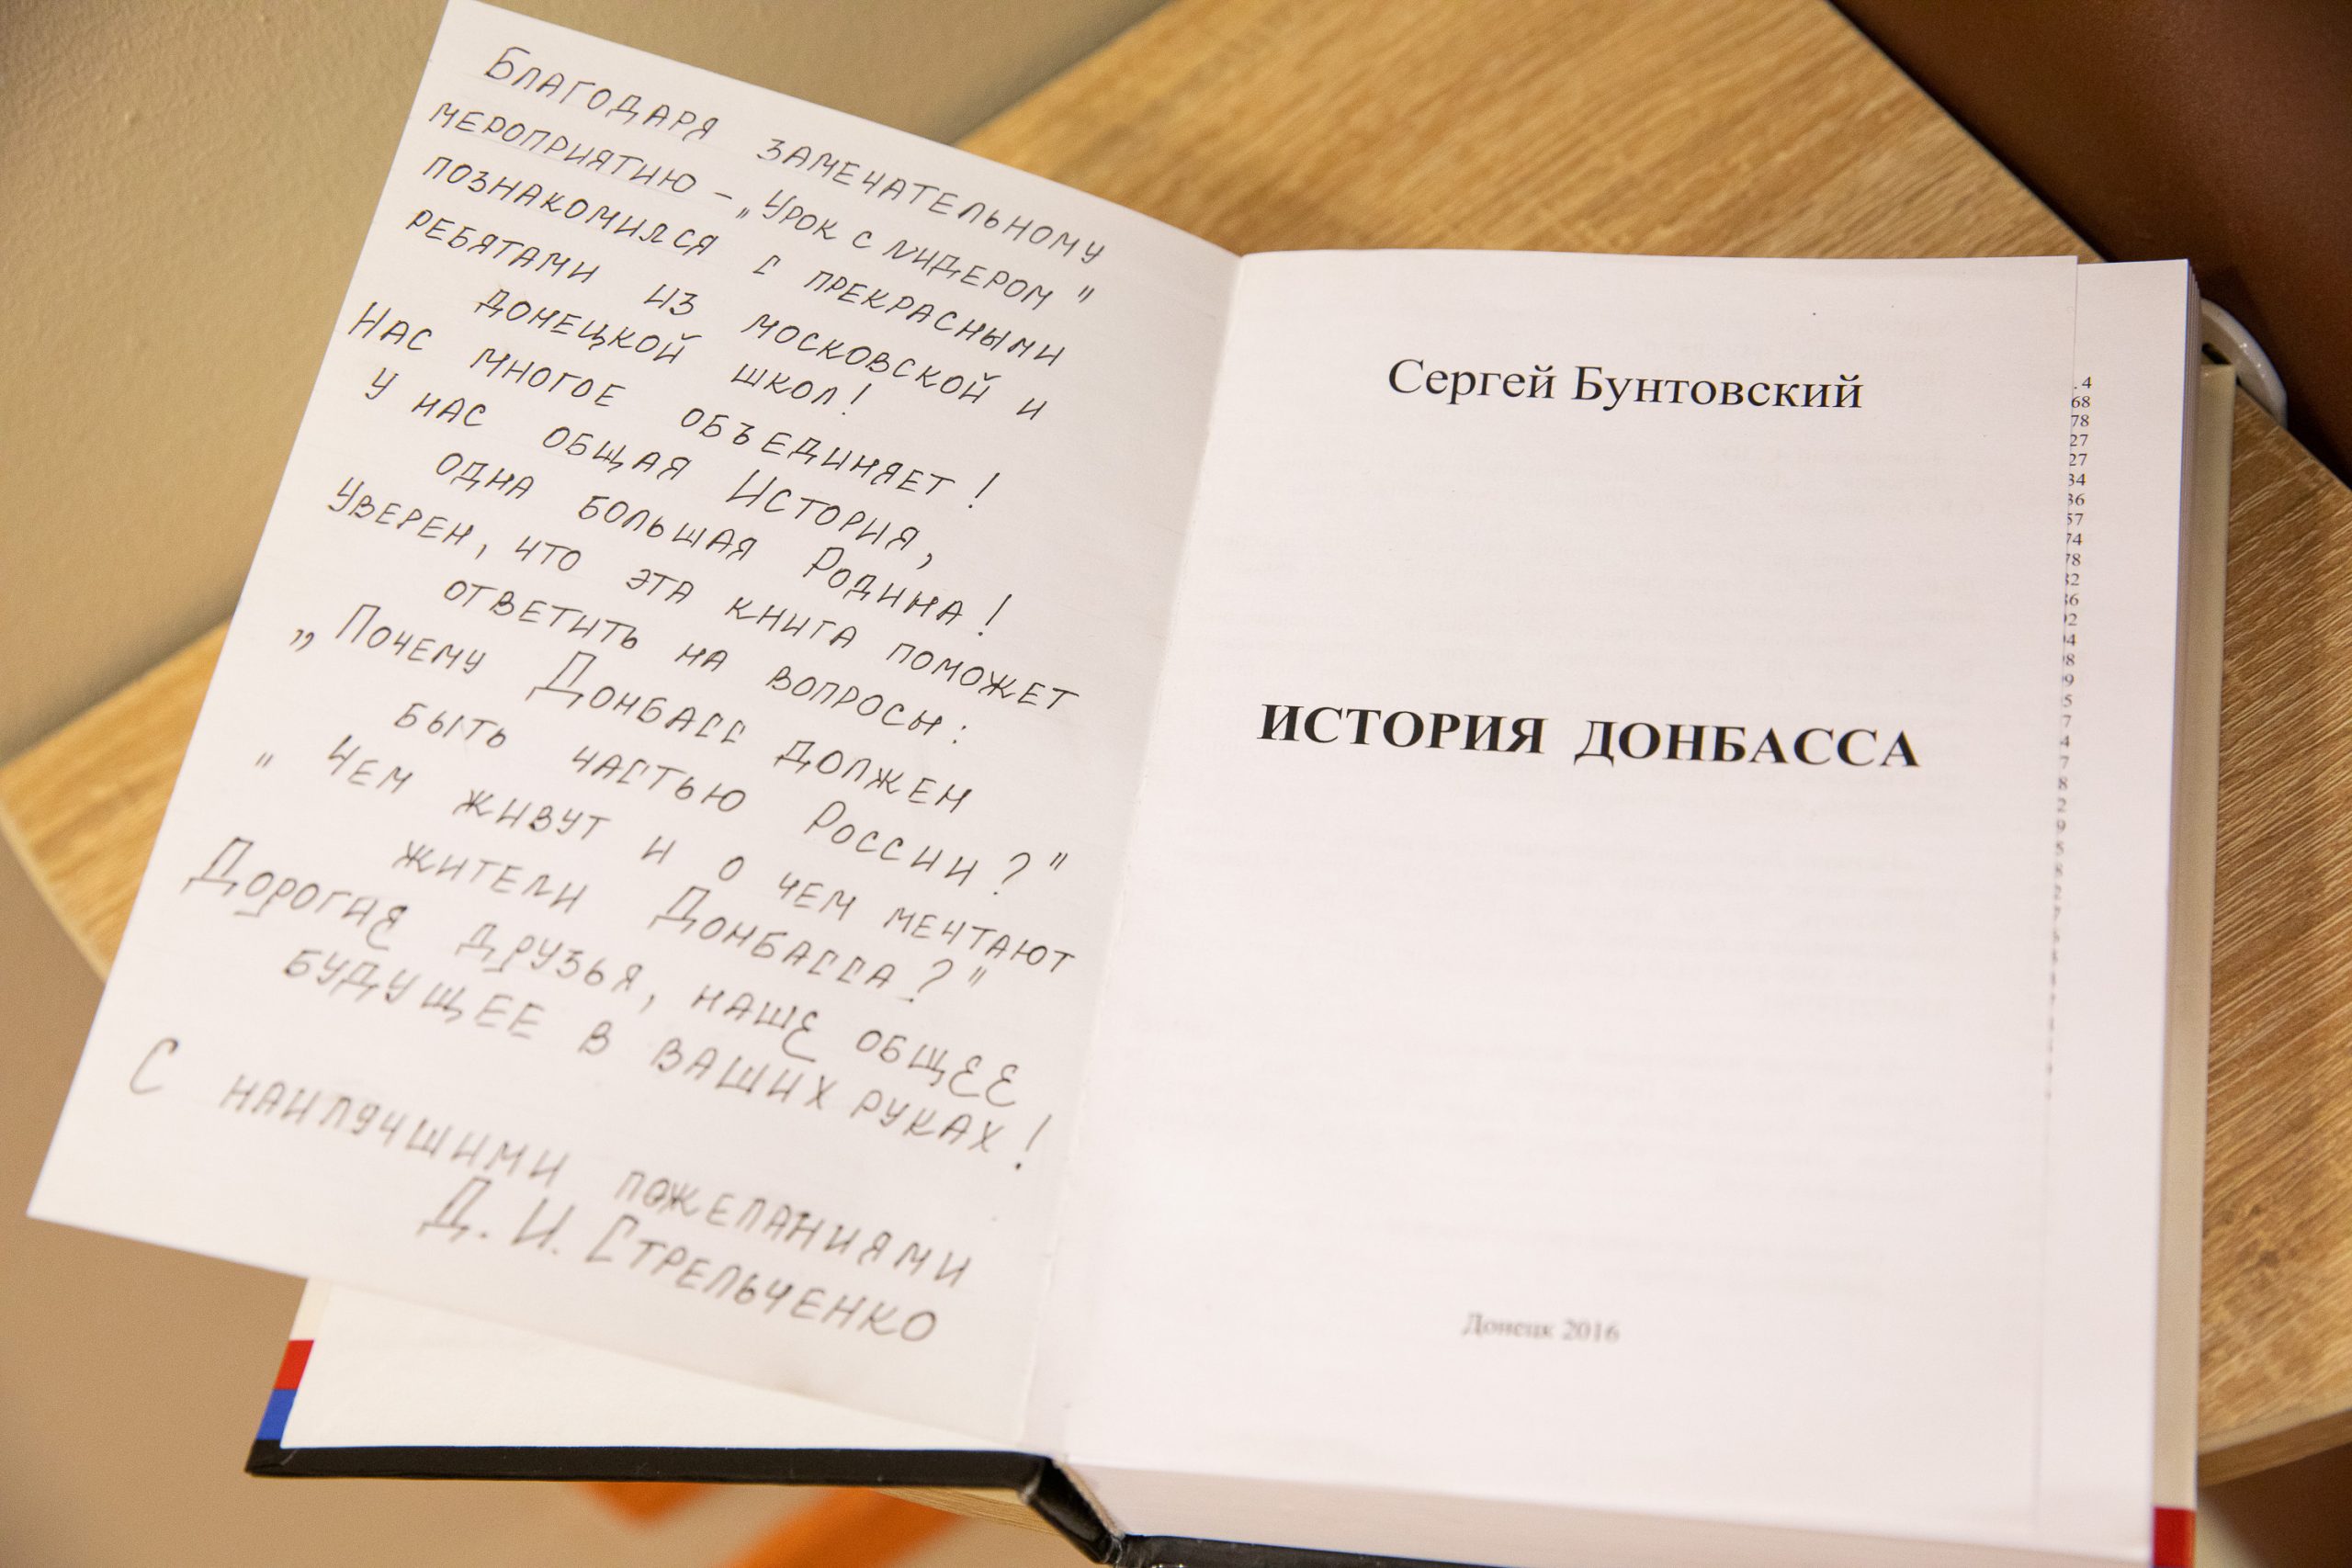 Благодаря замечательному
мероприятию – „Урок с лидером"
познакомился с прекрасными
ребятами из московской и
донецкой школ!
Нас многое объединяет!
У нас общая История,
одна большая Родина!
Уверен, что эта книга поможет
ответить на вопросы:
„Почему Донбасс должен
быть частью России?"
"Чем живут и о чем мечтают
жители Донбасса?"
Дорогие друзья, наше общее
будущее в ваших руках!
С наилучшими пожеланиями
Д. И. Стрельченко
Сергей Бунтовский
ИСТОРИЯ ДОНБАССА
Донецк 2016